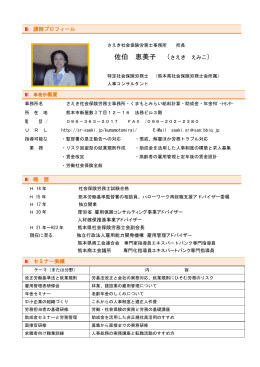 講師プロフィール
さえき社会保険労務士事務所　所長
佐伯　恵美子　（さえき　えみこ）
特定社会保険労務士　（熊本県社会保険労務士会所属）
人事コンサルタント
事務所概要
事務所名　さえき社会保険労務士事務所・くまもとみらい給料計算・助成金・年金ｻﾎﾟｰﾄｾﾝﾀｰ
所在地　熊本市新屋敷２丁目１２－１６　法務ビル３階
電話／　０９６－３６２－２０１７　ＦＡＸ／０９６－２０２－２３８０
ＵＲＬ　http://sr-saeki.jp/kumamotomirai/　E-Mail　saeki.sr@san.bbiq.jp
指導可能な　・管理監督の是正勧告への対応　・労使、解雇ほか労務トラブル対応
業務　・リスク回避型就業規則の作成、改定　・助成金を活用した人事制度の構築と求人募集
・賃金改定　・高齢者の雇用と賃金設計
・労働社会保険全般
略歴
Ｈ 14 年　社会保険労務士試験合格
Ｈ 15 年　熊本労働基準監督署の相談員、ハローワーク再就職支援アドバイザーを経験
Ｈ 17 年　独立開業
Ｈ 20 年　厚労省 雇用保護コンサルティング事業アドバイザー
人材確保推進事業アドバイザー
Ｈ 21 年～Ｈ23 年　熊本県社会保険労務士会副会長
現在に至る　独立行政法人雇用能力開発機構 雇用管理アドバイザー
熊本県商工会連合会　専門家指導員エキスパートバンク専門指導員
熊本商工会議所　専門化指導員エキスパートバンク専門指導員
セミナー実績
テーマ（または分野）　内　容
改正労働基準法と就業規則　労基法改正と会社の実務対応、就業規則にひそむ労務のリスク
雇用管理責任者研修　林業、建設業の雇用管理について
年金セミナー　老齢年金のしくみについて
中小企業の組織づくり　これからの人事制度と適正人件費
労務担当者の基礎研修　労務管理と社会保険の基礎知識
助成金セミナーと労務管理　助成金を活用した会社活用実例の紹介
面接官研修　募集から面接までの実務研修
求職者向け職業訓練　社会人の労務講座と転職活動のすすめ方